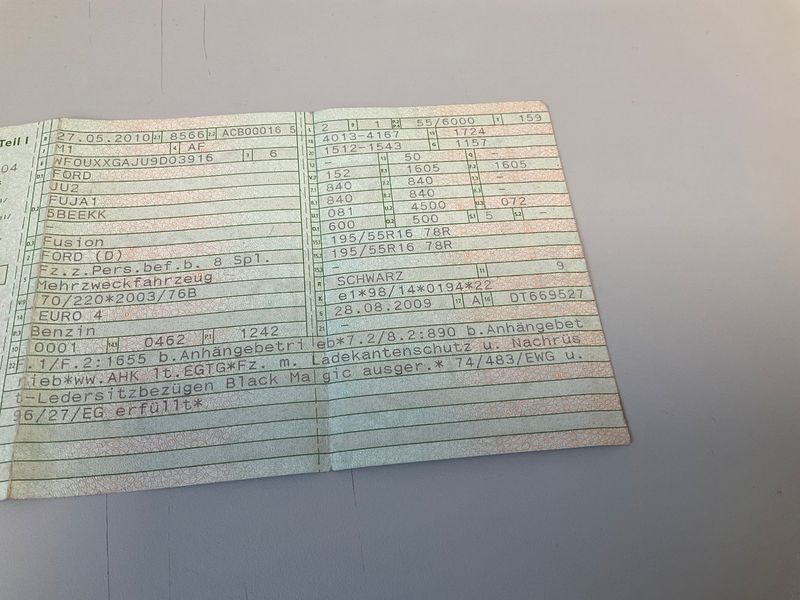 Teil I
04
27.05.2010 2.1 8566 2.2 ACB00016 5
M1 4 AF
WF0UXXGAJU9D03916 3 6
FORD
JU2
FUJA1
5BEEKK
-
Fusion
FORD (D)
Fz.z.Pers.bef.b. 8 Spl.
Mehrzweckfahrzeug
70/220*2003/76B
EURO 4
Benzin
0001 0462 P.1 1242
2 9 1 55/6000 T 159
4013-4167 1724
1512-1543 1157
- 50 -
152 1605 1605
840 840 -
840 840 -
081 4500 072
600 500 5 -
195/55R16 78R
195/55R16 78R
-
SCHWARZ 11 9
e1*98/14*0194*22
28.08.2009 17 A 16 DT669527
-
eb*7.2/8.2:890 b.Anhängebet
.1/F.2:1655 b.Anhängebetri
ieb*ww.AHK lt.EGTG*Fz. m. Ladekantenschutz u. Nachrüs
t-Ledersitzbezügen Black Magic ausger.* 74/483/EWG u.
96/27/EG erfüllt*